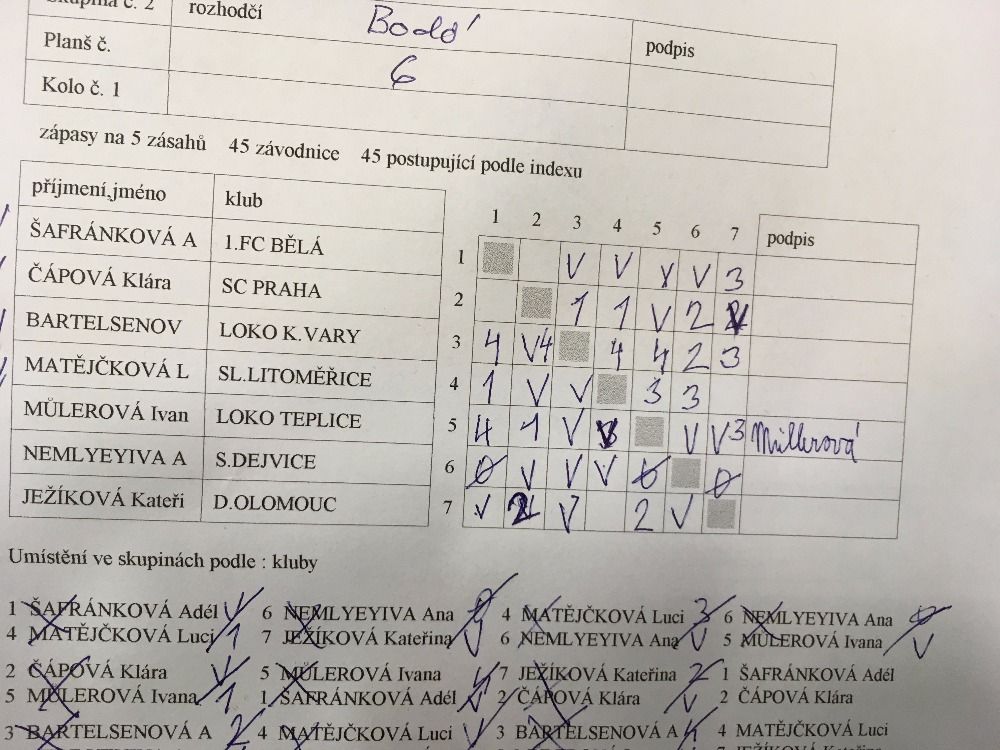 Skupina č. 2 rozhodčí podpis
Planš č. 6
Kolo č. 1
zápasy na 5 zásahů 45 závodnice 45 postupující podle indexu
příjmení,jméno klub 1 2 3 4 5 6 7 podpis
ŠAFRÁNKOVÁ A 1.FC BĚLÁ 1 V V V V 3
ČÁPOVÁ Klára SC PRAHA 2 1 1 V 2
BARTELSENOV LOKO K.VARY 3 4 V4 4 4 2 3
MATĚJČKOVÁ L SL.LITOMĚŘICE 4 1 V V 3 3
MŮLEROVÁ Ivan LOKO TEPLICE 5 4 1 V V V3 Müllerová
NEMLYEYIVA A S.DEJVICE 6 0 V V V 0 0
JEŽÍKOVÁ Kateři D.OLOMOUC 7 V 2 V 2 V
Umístění ve skupinách podle : kluby
1 ŠAFRÁNKOVÁ Adél V 6 NEMLYEYIVA Ana 0 4 MATĚJČKOVÁ Luci 3 6 NEMLYEYIVA Ana 0
4 MATĚJČKOVÁ Luci 1 7 JEŽÍKOVÁ Kateřina V 6 NEMLYEYIVA Ana V 5 MŮLEROVÁ Ivana V
2 ČÁPOVÁ Klára V 5 MŮLEROVÁ Ivana 4 7 JEŽÍKOVÁ Kateřina 2 1 ŠAFRÁNKOVÁ Adél
5 MŮLEROVÁ Ivana 1 1 ŠAFRÁNKOVÁ Adél V 2 ČÁPOVÁ Klára V 2 ČÁPOVÁ Klára
3 BARTELSENOVÁ A 2 4 MATĚJČKOVÁ Luci V 3 BARTELSENOVÁ A 4 4 MATĚJČKOVÁ Luci